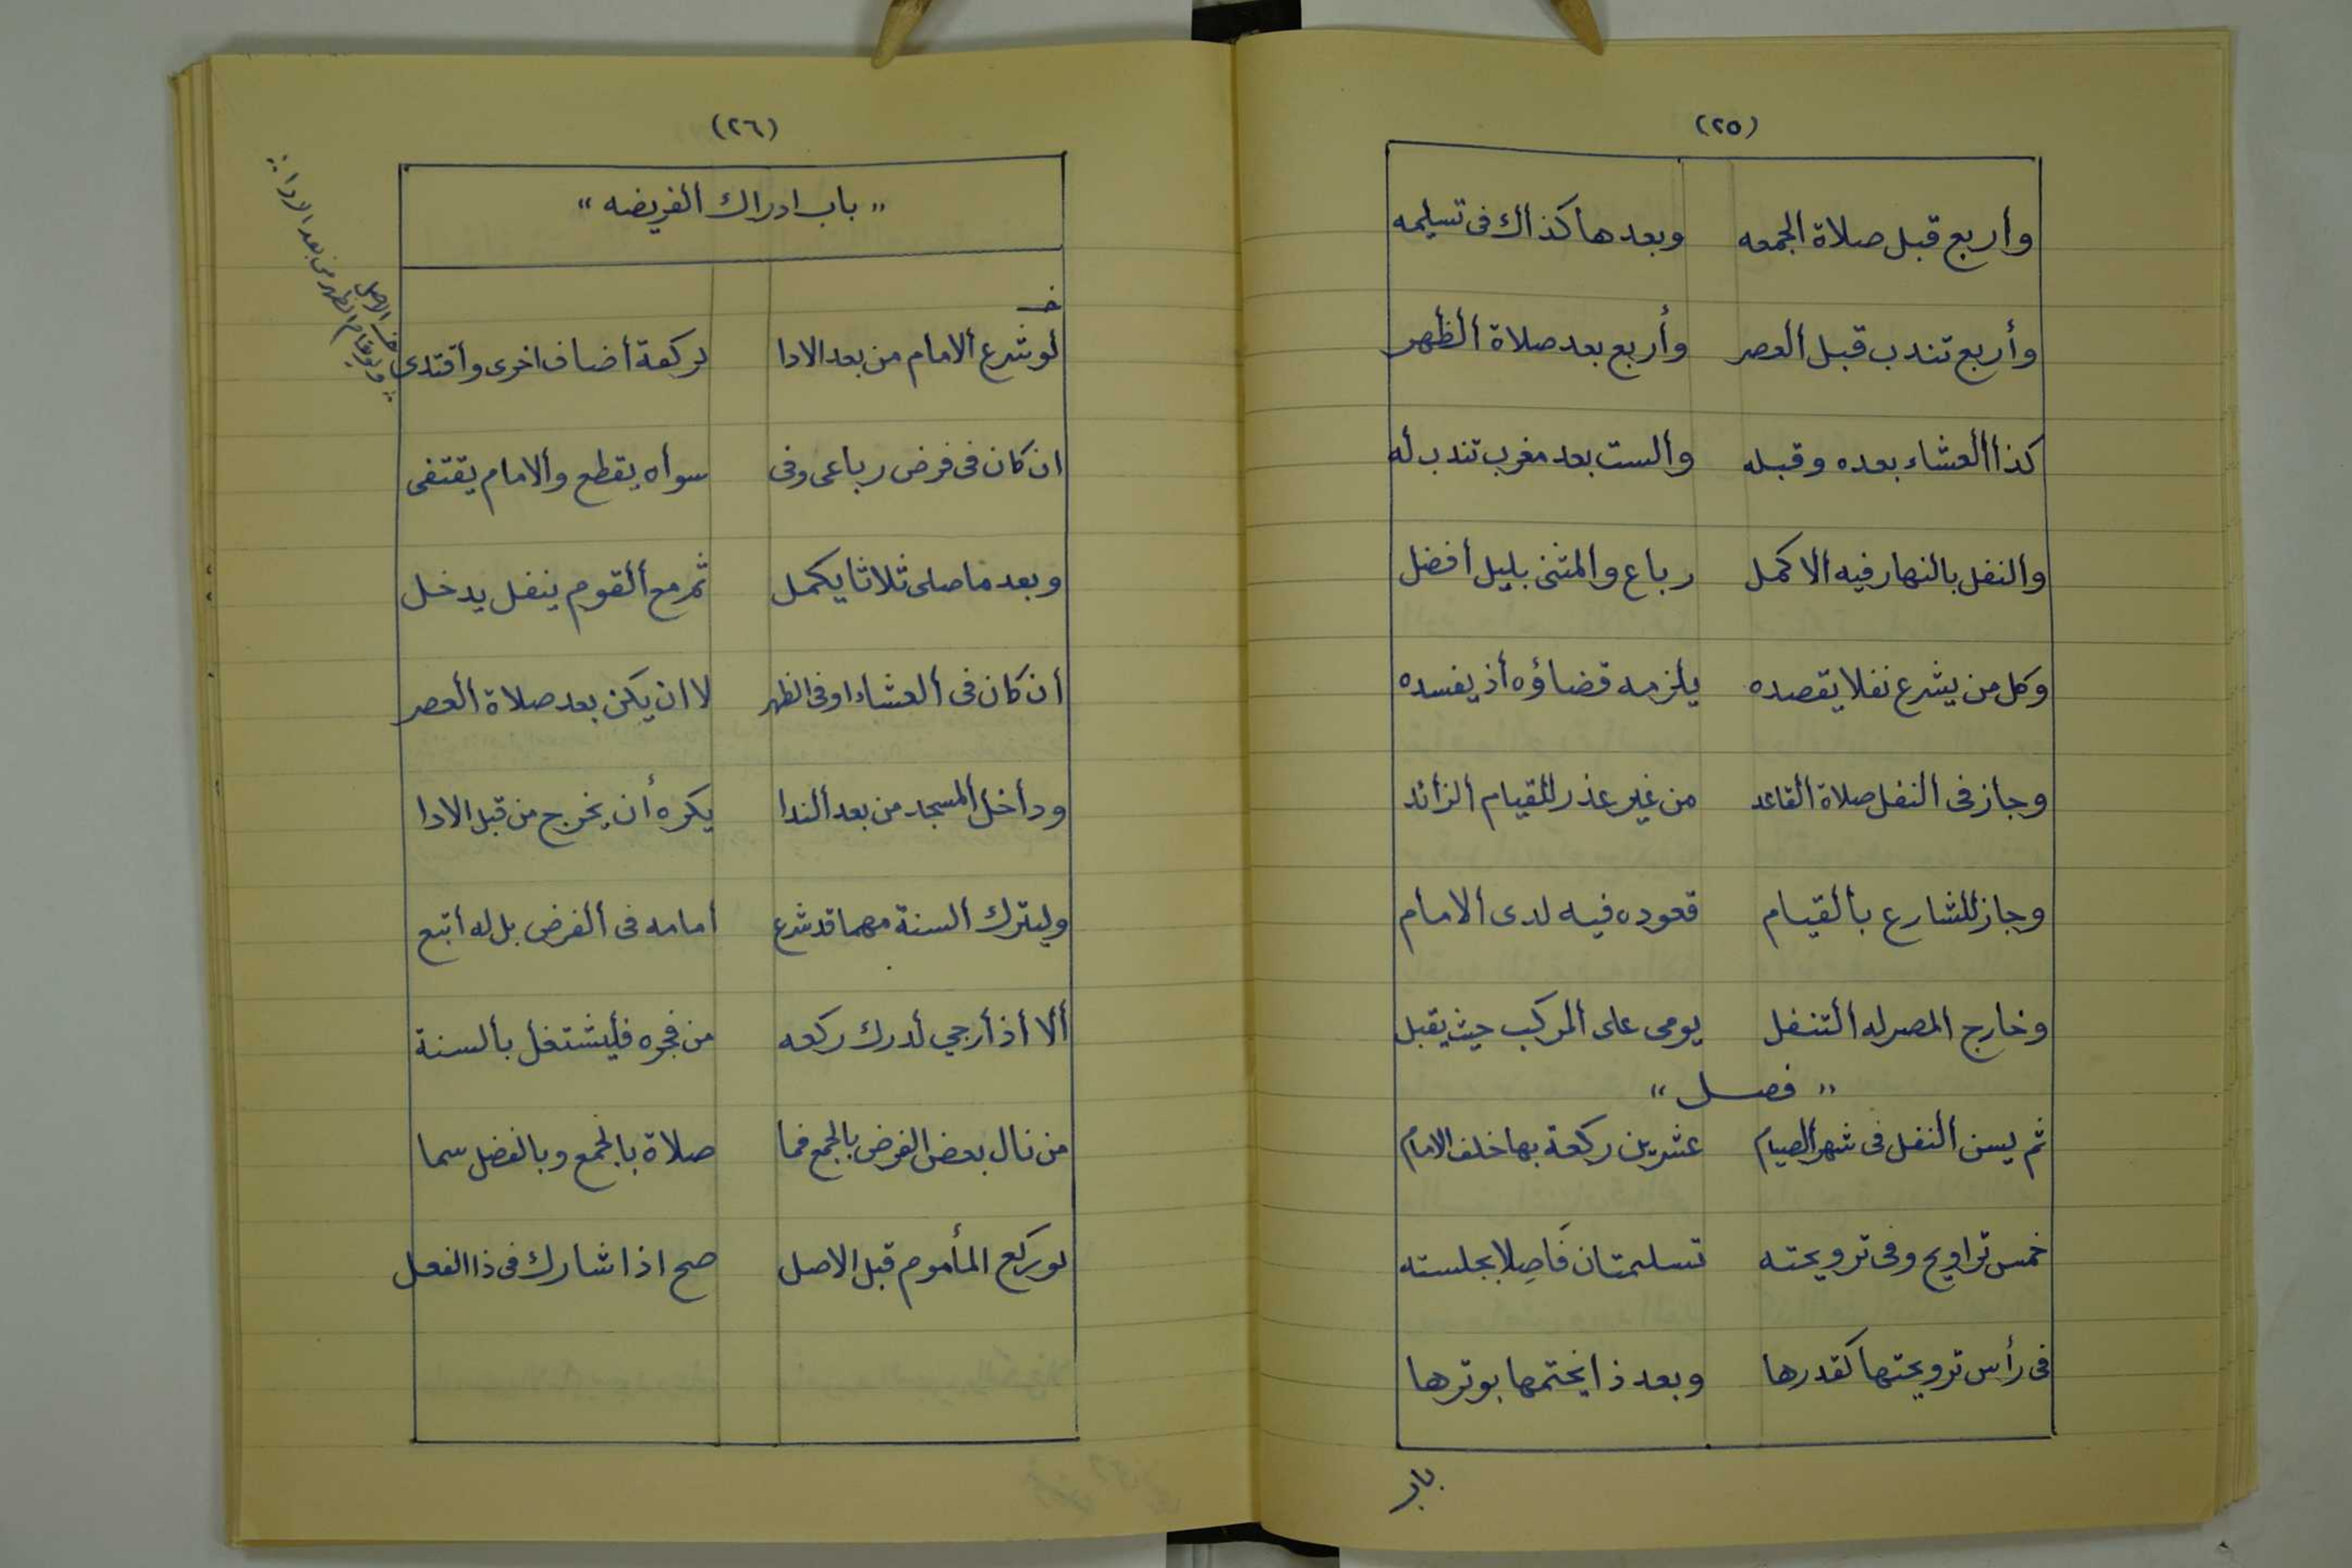 (٢٥)
وأربع قبل صلاة الجمعه وبعدها كذاك فى تسليمه
وأربع تندب قبل العصر وأربع بعد صلاة الظهر
كذا العشاء بعده وقبله والست بعد مغرب تندب له
والنفل بالنهار فيه الاكمل رباع والمثنى بليل أفضل
وكل من يشرع نفلا يقصده يلزمه قضاؤه أذ يفسده
وجاز فى النفل صلاة القاعد من غير عذر للقيام الزائد
وجاز للشارع بالقيام قعوده فيه لدى الامام
وخارج المصر له التنفل يومى على المركب حيث يقبل
„ فصل “
ثم يسن النفل فى شهر الصيام عشرين ركعة بها خلف الامام
خمس تراويح وفى ترويحته تسليمتان فَاصِلا بجلسته
فى رأس ترويحتها كقدرها وبعد ذا يختمها بوترها
باب
(٢٦)
„ باب ادراك الفريضه “
خـ
لو شرع الامام من بعد الادا لركعة أضاف اخرى وأقتدى
ان كان فى فرض رباعى وفى سواه يقطع والامام يقتفى
وبعد ما صلى ثلاثا يكمل ثم مع القوم بنفل يدخل
أن كان فى العشاء او فى الظهر لا ان يكن بعد صلاة العصر
وداخل المسجد من بعد الندا يكره أن يخرج من قبل الادا
وليترك السنة مهما قد شرع أمامه فى الفرض بل له أتبع
ألا أذ أرجي أدرك ركعه من فجره فليشتغل بالسنة
من نال بعض الفرض بالجمع فما صلاة بالجمع وبالفضل سما
لو يركع المأموم قبل الاصل صح اذا شارك فى ذا الفعل
الاصل
من بعد الادا